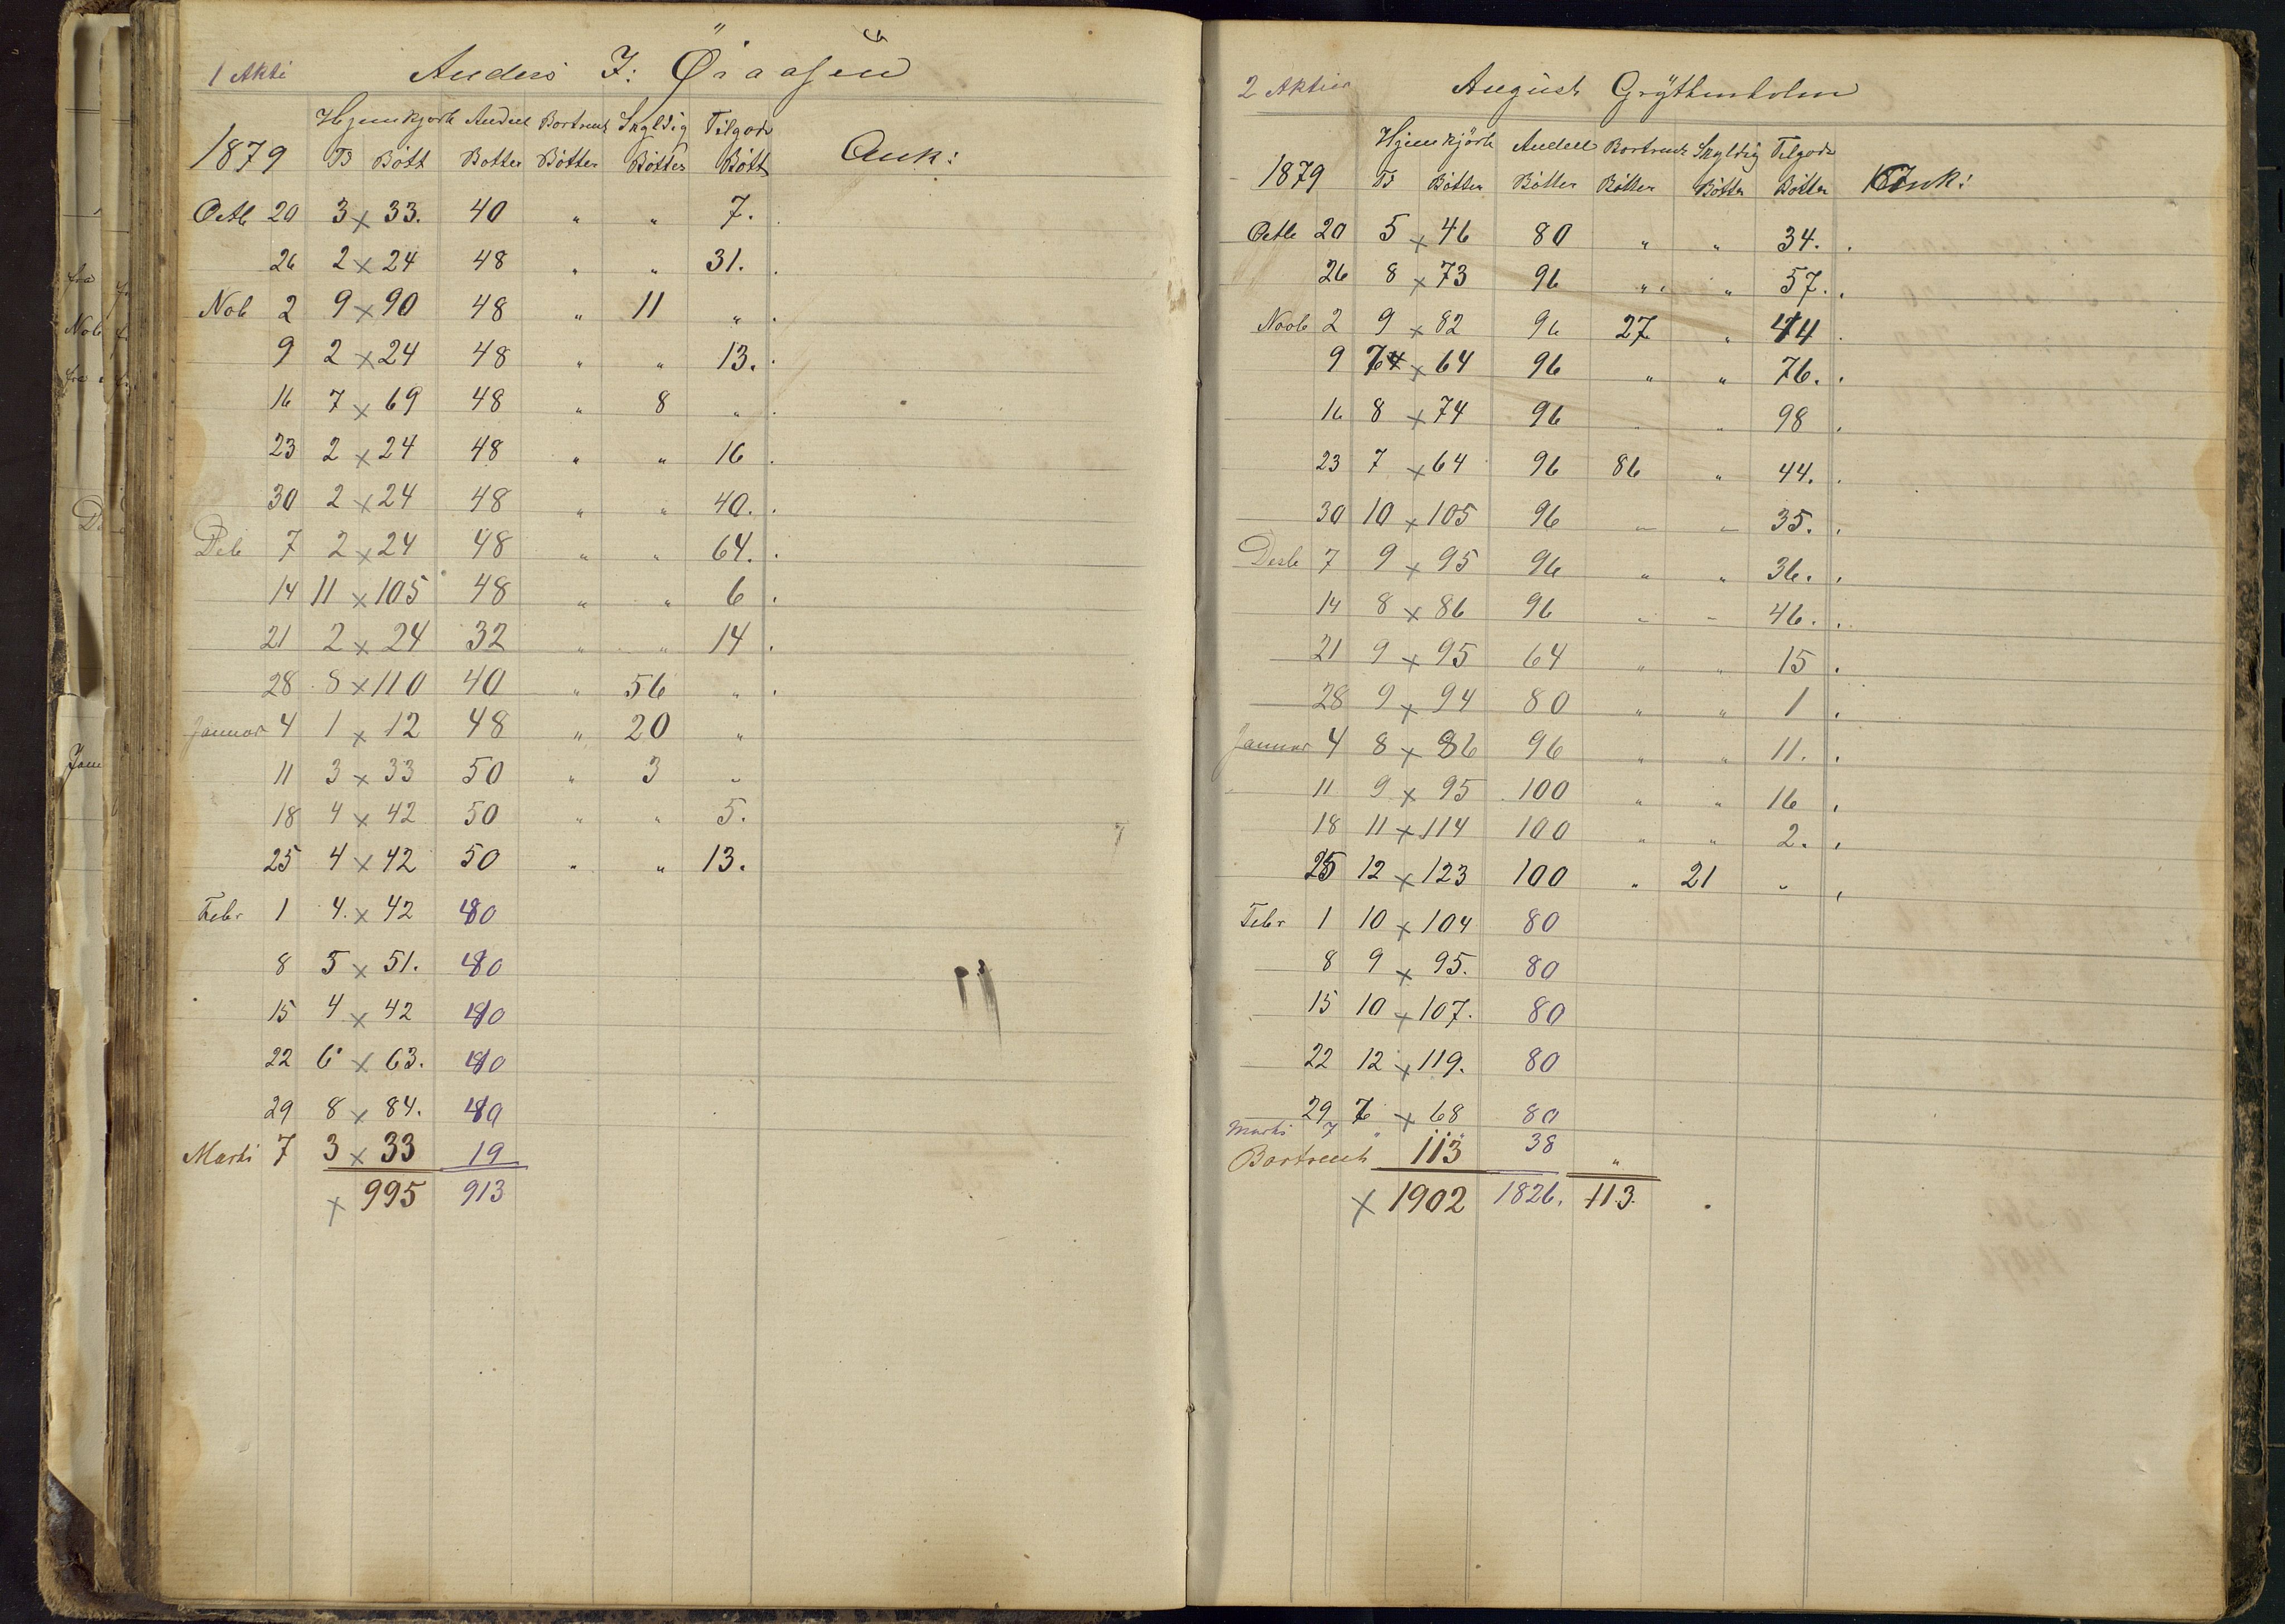 1 Akti Anders J: Öiaasen
Hjemkjørte Andeel Bortrent Skyldig Tilgode
1879 TS Bøtt Bøtter Bøtter Bøtter Bøtt Ank:
Octb 20 3 x 33. 40 " " 7.
26 2 x 24 48 " " 31.
Nob 2 9 x 90 48 " 11 "
9 2 x 24 48 " " 13.
16 7 x 69 48 " 8 "
23 2 x 24 48 " " 16
30 2 x 24 48 " " 40.
Deb 7 2 x 24 48 " " 64.
14 11 x 105 48 " " 6
21 2 x 24 32 " " 14
28 8 x 110 40 " 56 "
Januar 4 1 x 12 48 " 20 "
11 3 x 33 50 " 3 "
18 4 x 42 50 " " 5.
25 4 x 42 50 " " 13.
Febr 1 4. x 42 40
8 5 x 51. 40
15 4 x 42 40
22 6 x 63. 40
29 8 x 84. 40
Marti 7 3 x 33 19
x 995 913
2 Aktier August Gryttenholm
Hjemkjørte Andeel Bortrent Skyldig Tilgode
1879 TS Bøtter Bøtter Bøtter Bøtter Bøtter Ank:
Octb 20 5 x 46 80 " " 34.
26 8 x 73 96 " " 57.
Novb 2 9 x 82 96 27 " 44
9 7 x 64 96 " " 76.
16 8 x 74 96 " " 98
23 7 x 64 96 86 " 44.
30 10 x 105 96 " " 35.
Desb 7 9 x 95 96 " " 36.
14 8 x 86 96 " " 46.
21 9 x 95 64 " " 15
28 9 x 94 80 " " 1
Januar 4 8 x 86 96 " " 11.
11 9 x 95 100 " " 16
18 11 x 114 100 " " 2.
25 12 x 123 100 " 21 "
Febr 1 10 x 104 80
8 9 x 95. 80
15 10 x 107. 80
22 12 x 119. 80
29 7 x 68 80
Marti 7 " 38
Bortrent 113 "
x 1902 1826. 113.
fra
Nob
fra
De
Jan